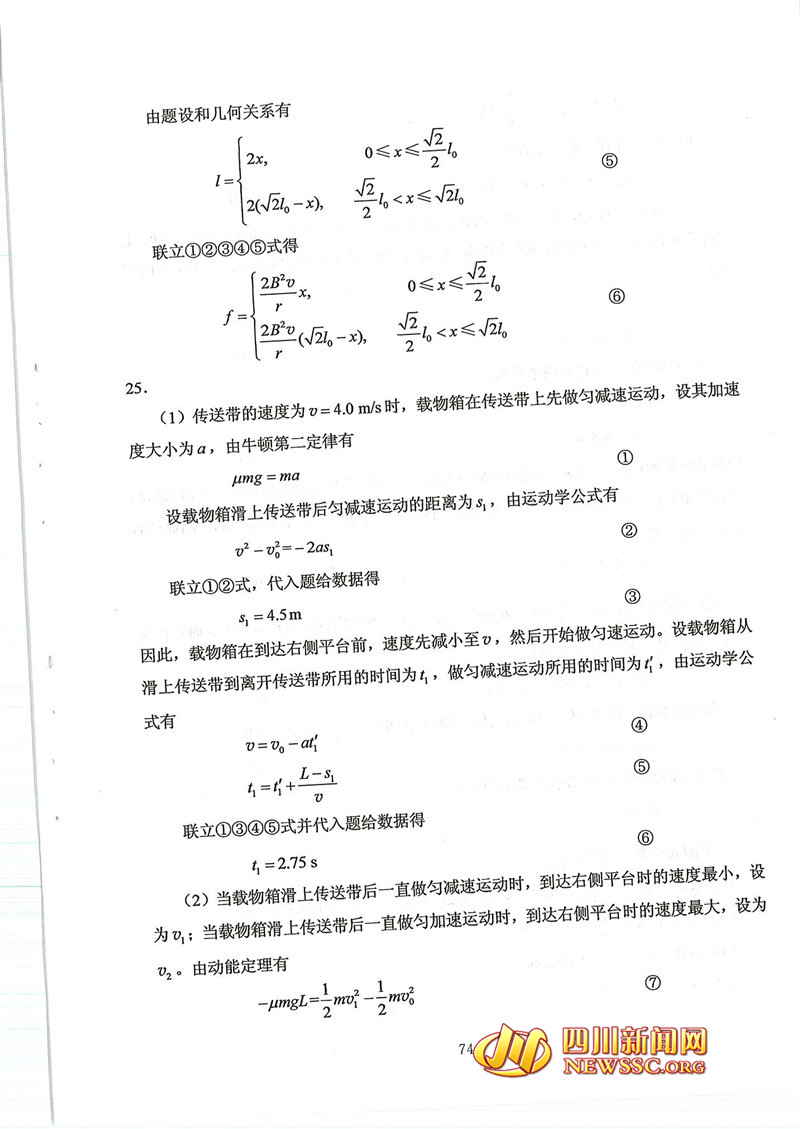 由题设和几何关系有
l = { 2x, 0 ≤ x ≤ √2/2 l₀ ⑤
2(√2l₀ − x), √2/2 l₀ < x ≤ √2l₀
联立①②③④⑤式得
f = { 2B²v/r x, 0 ≤ x ≤ √2/2 l₀ ⑥
2B²v/r (√2l₀ − x), √2/2 l₀ < x ≤ √2l₀
25.
（1）传送带的速度为 v = 4.0 m/s 时，载物箱在传送带上先做匀减速运动，设其加速
度大小为 a，由牛顿第二定律有
μmg = ma ①
设载物箱滑上传送带后匀减速运动的距离为 s₁，由运动学公式有
v² − v₀² = −2as₁ ②
联立①②式，代入题给数据得
s₁ = 4.5 m ③
因此，载物箱在到达右侧平台前，速度先减小至 v，然后开始做匀速运动。设载物箱从
滑上传送带到离开传送带所用的时间为 t₁，做匀减速运动所用的时间为 t₁′，由运动学公
式有
v = v₀ − at₁′ ④
t₁ = t₁′ + (L − s₁)/v ⑤
联立①③④⑤式并代入题给数据得
t₁ = 2.75 s ⑥
（2）当载物箱滑上传送带后一直做匀减速运动时，到达右侧平台时的速度最小，设
为 v₁；当载物箱滑上传送带后一直做匀加速运动时，到达右侧平台时的速度最大，设为
v₂。由动能定理有
−μmgL = 1/2 mv₁² − 1/2 mv₀² ⑦
74
四川新闻网
NEWSSC.ORG